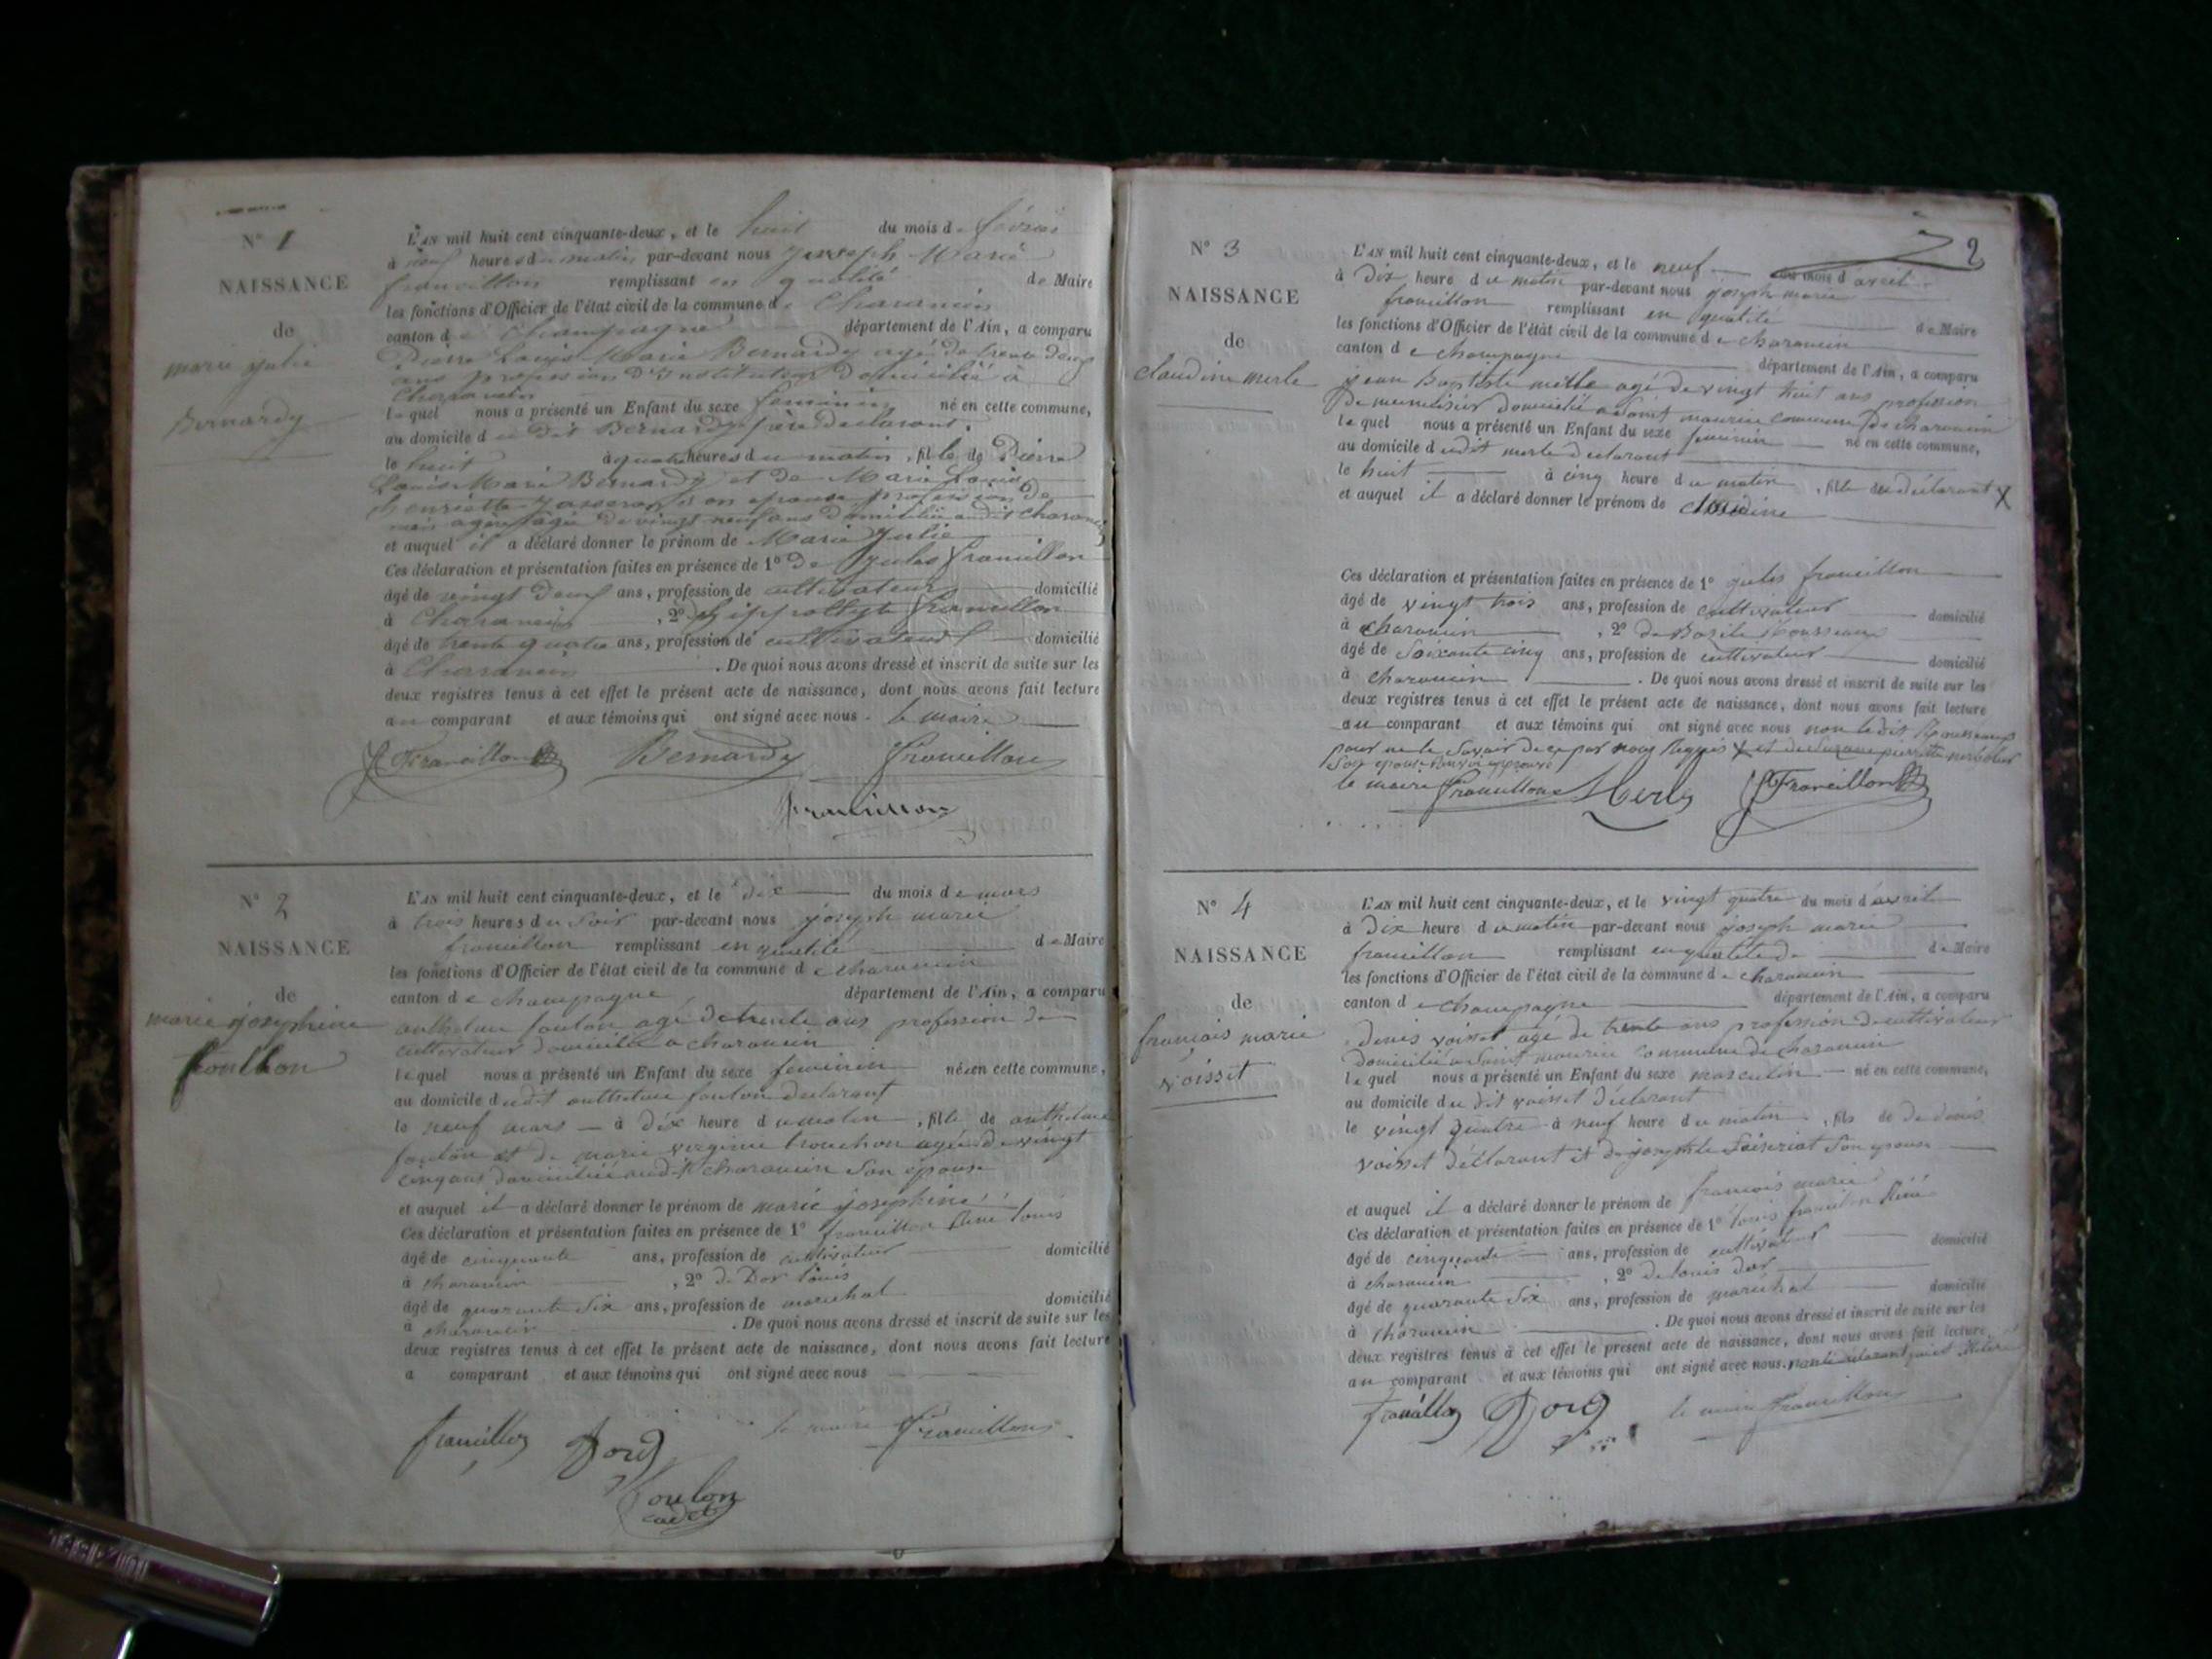 N° 1
NAISSANCE
de
marie julie
Bernardy
L'an mil huit cent cinquante-deux, et le huit du mois de février
à neuf heures du matin par-devant nous Joseph Marie
franillon remplissant en qualité de Maire
les fonctions d'Officier de l'état civil de la commune de Charancin
canton de Champagne département de l'Ain, a comparu
Pierre Louis Marie Bernardy agé de trente deux
ans profession d'Instituteur domicilié à
Charancin
lequel nous a présenté un Enfant du sexe féminin né en cette commune,
au domicile du dit Bernardy père déclarant.
le huit à quatre heures du matin, fille de Pierre
Louis Marie Bernardy et de Marie Louise
henriette son épouse profession de
agée de vingt neuf ans domiciliée audit charancin
et auquel il a déclaré donner le prénom de Marie Julie
Ces déclaration et présentation faites en présence de 1° de Jules franillon
âgé de vingt deux ans, profession de cultivateur domicilié
à Charancin, 2° hippolyte franillon
âgé de trente quatre ans, profession de cultivateur domicilié
à Charancin. De quoi nous avons dressé et inscrit de suite sur les
deux registres tenus à cet effet le présent acte de naissance, dont nous avons fait lecture
au comparant et aux témoins qui ont signé avec nous. le maire
J Franillon Bernardy franillon
franillon
N° 2
NAISSANCE
de
marie josephine
foulhon
L'an mil huit cent cinquante-deux, et le dix du mois de mars
à trois heures du soir par-devant nous joseph marie
franillon remplissant en qualité de Maire
les fonctions d'Officier de l'état civil de la commune de charancin
canton de champagne département de l'Ain, a comparu
anthelme foulon agé de trente ans profession de
cultivateur domicilié a charancin
lequel nous a présenté un Enfant du sexe feminin né en cette commune,
au domicile dudit anthelme foulon declarant
le neuf mars à dix heure du matin, fille de anthelme
foulon et de marie virginie trouchon agée de vingt
cinq ans domiciliée audit charancin son épouse
et auquel il a déclaré donner le prénom de marie josephine
Ces déclaration et présentation faites en présence de 1° franillon louis
âgé de cinquante ans, profession de cultivateur domicilié
à charancin, 2° de Dor louis
âgé de quarante six ans, profession de marechal domicilié
à charancin. De quoi nous avons dressé et inscrit de suite sur les
deux registres tenus à cet effet le présent acte de naissance, dont nous avons fait lecture
a comparant et aux témoins qui ont signé avec nous
franillon Dor le maire franillon
Foulon
cadet
2
N° 3
NAISSANCE
de
claudine merle
L'an mil huit cent cinquante-deux, et le neuf du mois d'avril
à Dix heure du matin par-devant nous joseph marie
franillon remplissant en qualité de Maire
les fonctions d'Officier de l'état civil de la commune de charancin
canton de champagne département de l'Ain, a comparu
jean Baptiste merle agé de vingt huit ans profession
De menuisier domicilié a Saint maurice commune de charancin
lequel nous a présenté un Enfant du sexe feminin né en cette commune,
au domicile dudit merle declarant
le huit à cinq heure du matin, fille du déclarant X
et auquel il a déclaré donner le prénom de claudine
Ces déclaration et présentation faites en présence de 1° jules franillon
âgé de vingt trois ans, profession de cultivateur domicilié
à charancin, 2° de Basile
âgé de Soixante cinq ans, profession de cultivateur domicilié
à charancin. De quoi nous avons dressé et inscrit de suite sur les
deux registres tenus à cet effet le présent acte de naissance, dont nous avons fait lecture
au comparant et aux témoins qui ont signé avec nous non le dit
pour ne le Savoir de ce par nous X et de Suzanne pierrette
Son épouse Renvoi approuvé
le maire franillon Merle J Franillon
N° 4
NAISSANCE
de
françois marie
voisset
L'an mil huit cent cinquante-deux, et le vingt quatre du mois d'avril
à Dix heure du matin par-devant nous joseph marie
franillon remplissant en qualité de de Maire
les fonctions d'Officier de l'état civil de la commune de charancin
canton de champagne département de l'Ain, a comparu
denis voisset agé de trente ans profession de cultivateur
domicilié a Saint maurice commune de charancin
lequel nous a présenté un Enfant du sexe masculin né en cette commune,
au domicile du dit voisset déclarant
le vingt quatre à neuf heure du matin, fils de de denis
voisset déclarant et de josephte Son épouse
et auquel il a déclaré donner le prénom de françois marie
Ces déclaration et présentation faites en présence de 1° louis franillon
âgé de cinquante ans, profession de cultivateur domicilié
à charancin, 2° de louis dor
âgé de quarante six ans, profession de maréchal domicilié
à charancin. De quoi nous avons dressé et inscrit de suite sur les
deux registres tenus à cet effet le présent acte de naissance, dont nous avons fait lecture
au comparant et aux témoins qui ont signé avec nous. non le déclarant
franillon Dor le maire franillon